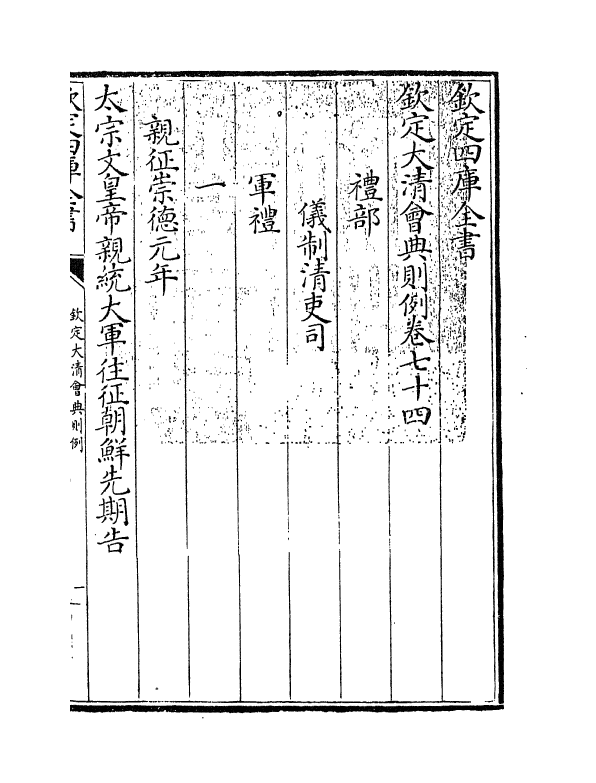 欽定四庫全書
欽定大清會典則例卷七十四
禮部
儀制清吏司
軍禮
一
親征崇德元年
太宗文皇帝親統大軍往征朝鮮先期告
欽定四庫全書
欽定大清會典則例
一